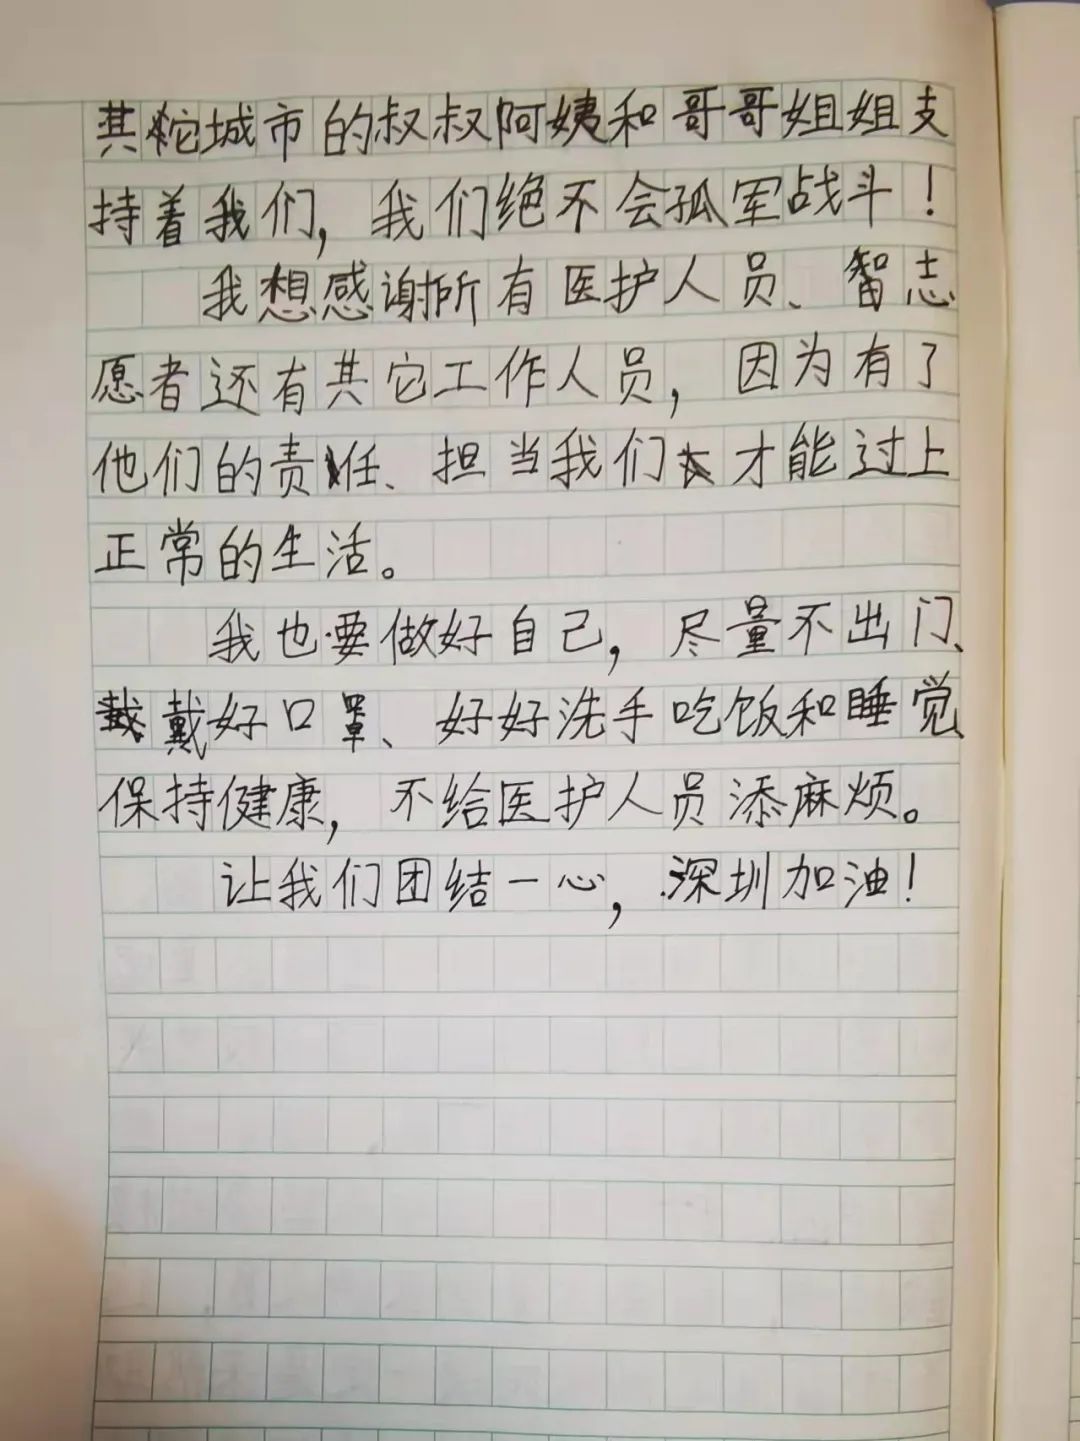 其它城市的叔叔阿姨和哥哥姐姐支
持着我们，我们绝不会孤军战斗！
我想感谢所有医护人员、志
愿者还有其它工作人员，因为有了
他们的责任、担当我们才能过上
正常的生活。
我也要做好自己，尽量不出门、
戴好口罩、好好洗手吃饭和睡觉
保持健康，不给医护人员添麻烦。
让我们团结一心，深圳加油！